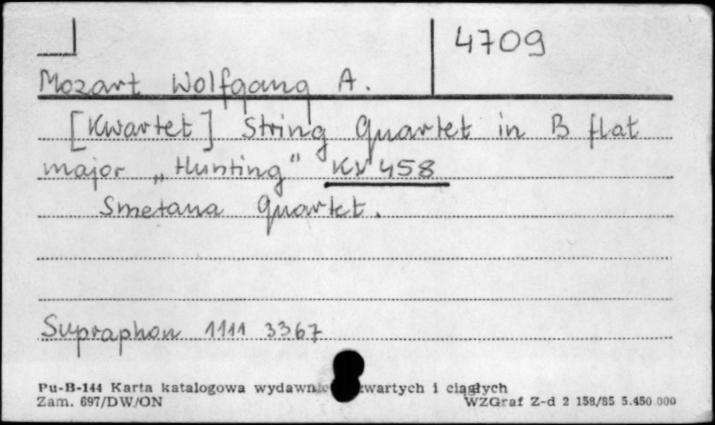 4709
Mozart Wolfgang A.
[Kwartet] String Quartet in B flat
major „Hunting" KV 458
Smetana Quartet.
Supraphon 1111 3367
Pu-B-144 Karta katalogowa wydawnic zwartych i ciągłych
Zam. 697/DW/ON WZGraf Z-d 2 158/85 5.450.000